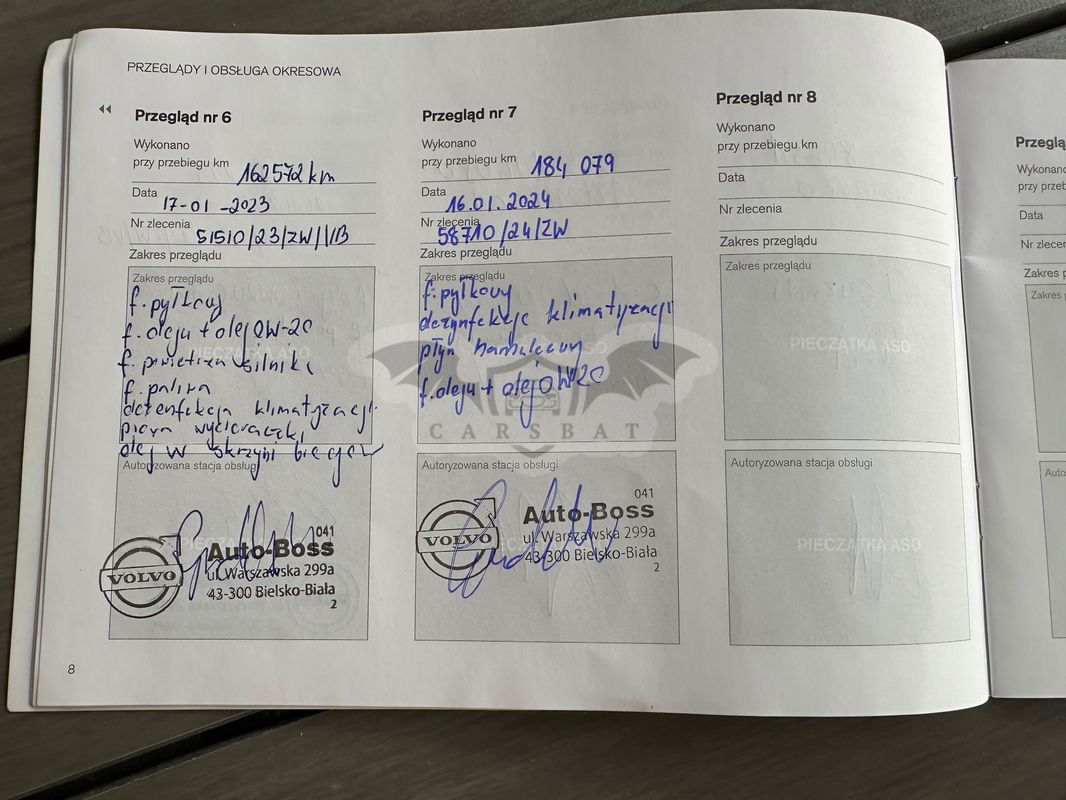 PRZEGLĄDY I OBSŁUGA OKRESOWA
Przegląd nr 6
Wykonano
przy przebiegu km 162572 km
Data 17-01-2023
Nr zlecenia 51510/23/ZW/VB
Zakres przeglądu
Zakres przeglądu
f. pyłkowy
f. oleju + olej 0W-20
f. powietrza silnika
f. paliwa
dezenfekcja klimatyzacji
pióra wycieraczki
olej w skrzyni biegów
PIECZĄTKA ASO
Autoryzowana stacja obsługi
041
VOLVO
Auto-Boss
ul. Warszawska 299a
43-300 Bielsko-Biała
2
Przegląd nr 7
Wykonano
przy przebiegu km 184 079
Data
16.01.2024
Nr zlecenia
58710/24/ZW
Zakres przeglądu
Zakres przeglądu
f. pyłkowy
dezynfekcje klimatyzacji
płyn hamulcowy
f. oleju + olej 0W20
CARSBAT
Autoryzowana stacja obsługi
041
VOLVO
Auto-Boss
ul. Warszawska 299a
43-300 Bielsko-Biała
2
Przegląd nr 8
Wykonano
przy przebiegu km
Data
Nr zlecenia
Zakres przeglądu
Zakres przeglądu
PIECZĄTKA ASO
Autoryzowana stacja obsługi
PIECZĄTKA ASO
8
Przeglą
Wykonano
przy przeb
Data
Nr zlecen
Zakres p
Zakres p
Auto